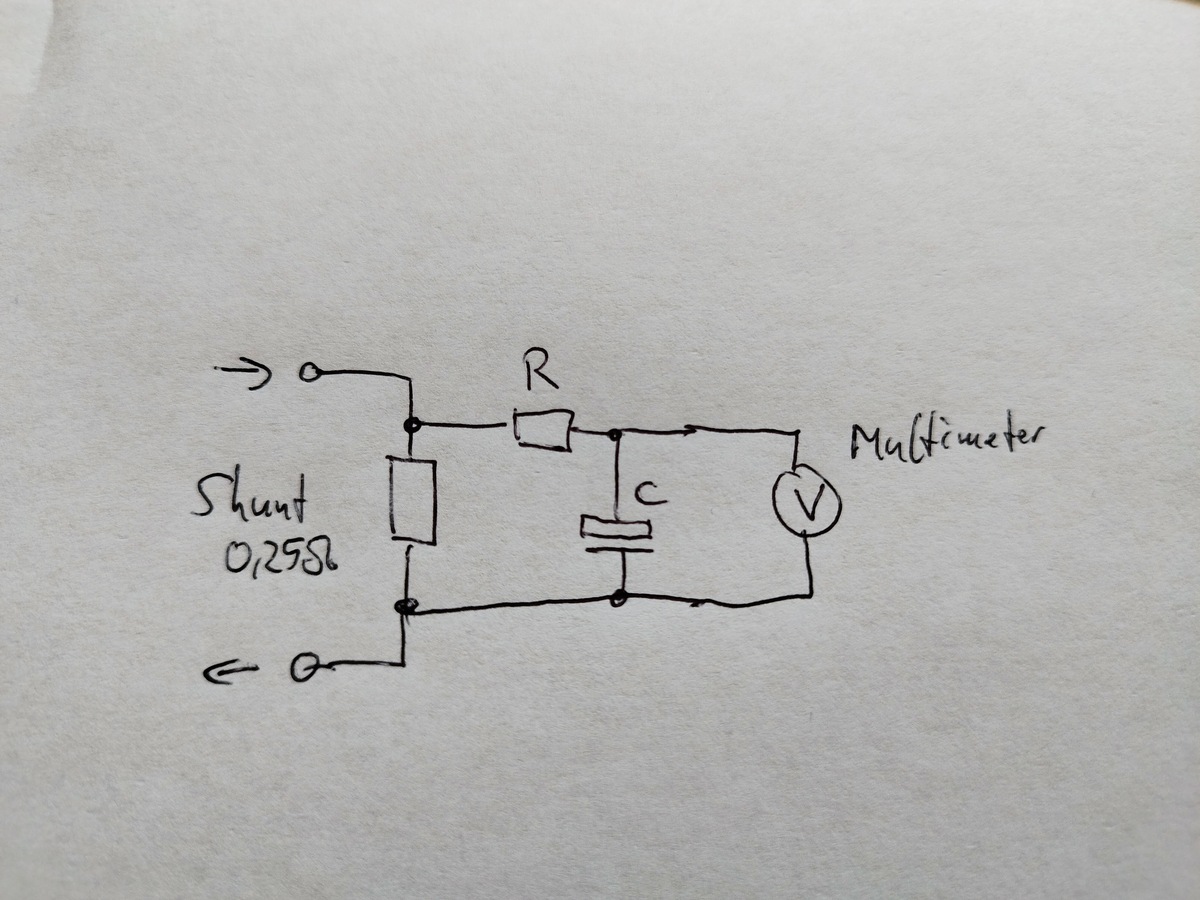 R
Multimeter
C
V
Shunt
0,25Ω